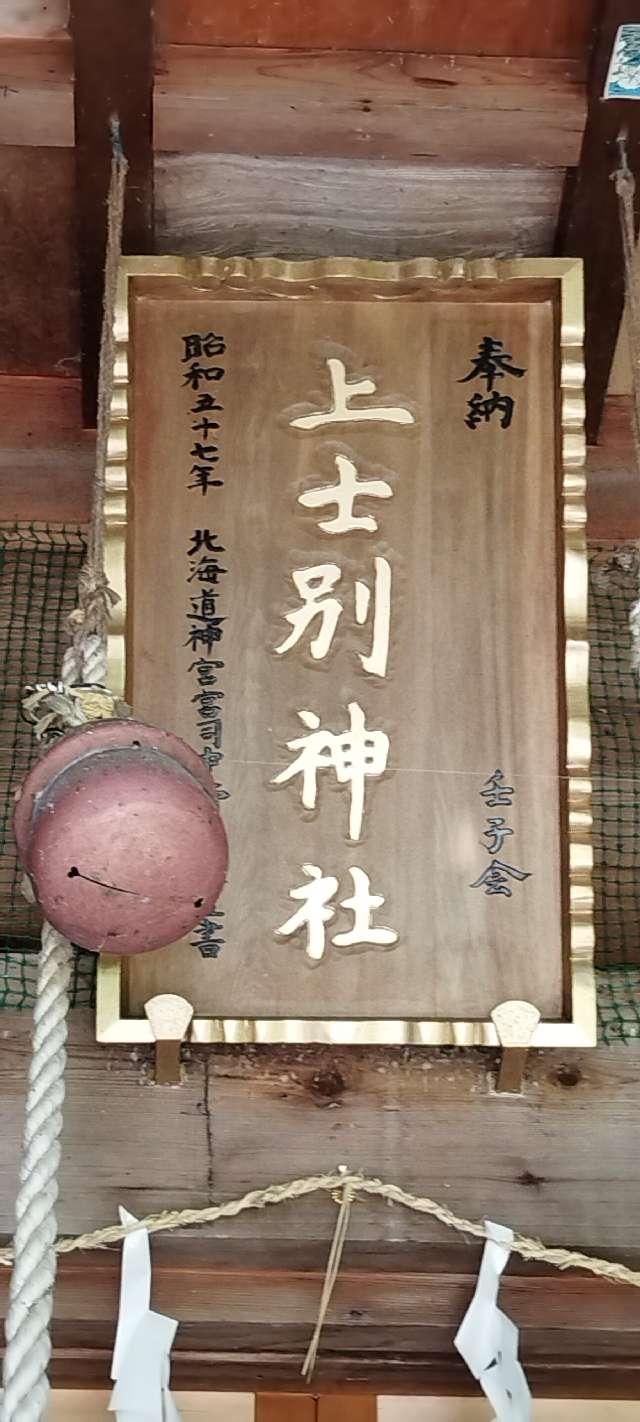 奉納
壬子会
上士別神社
昭和五十七年 北海道神宮宮司中
書